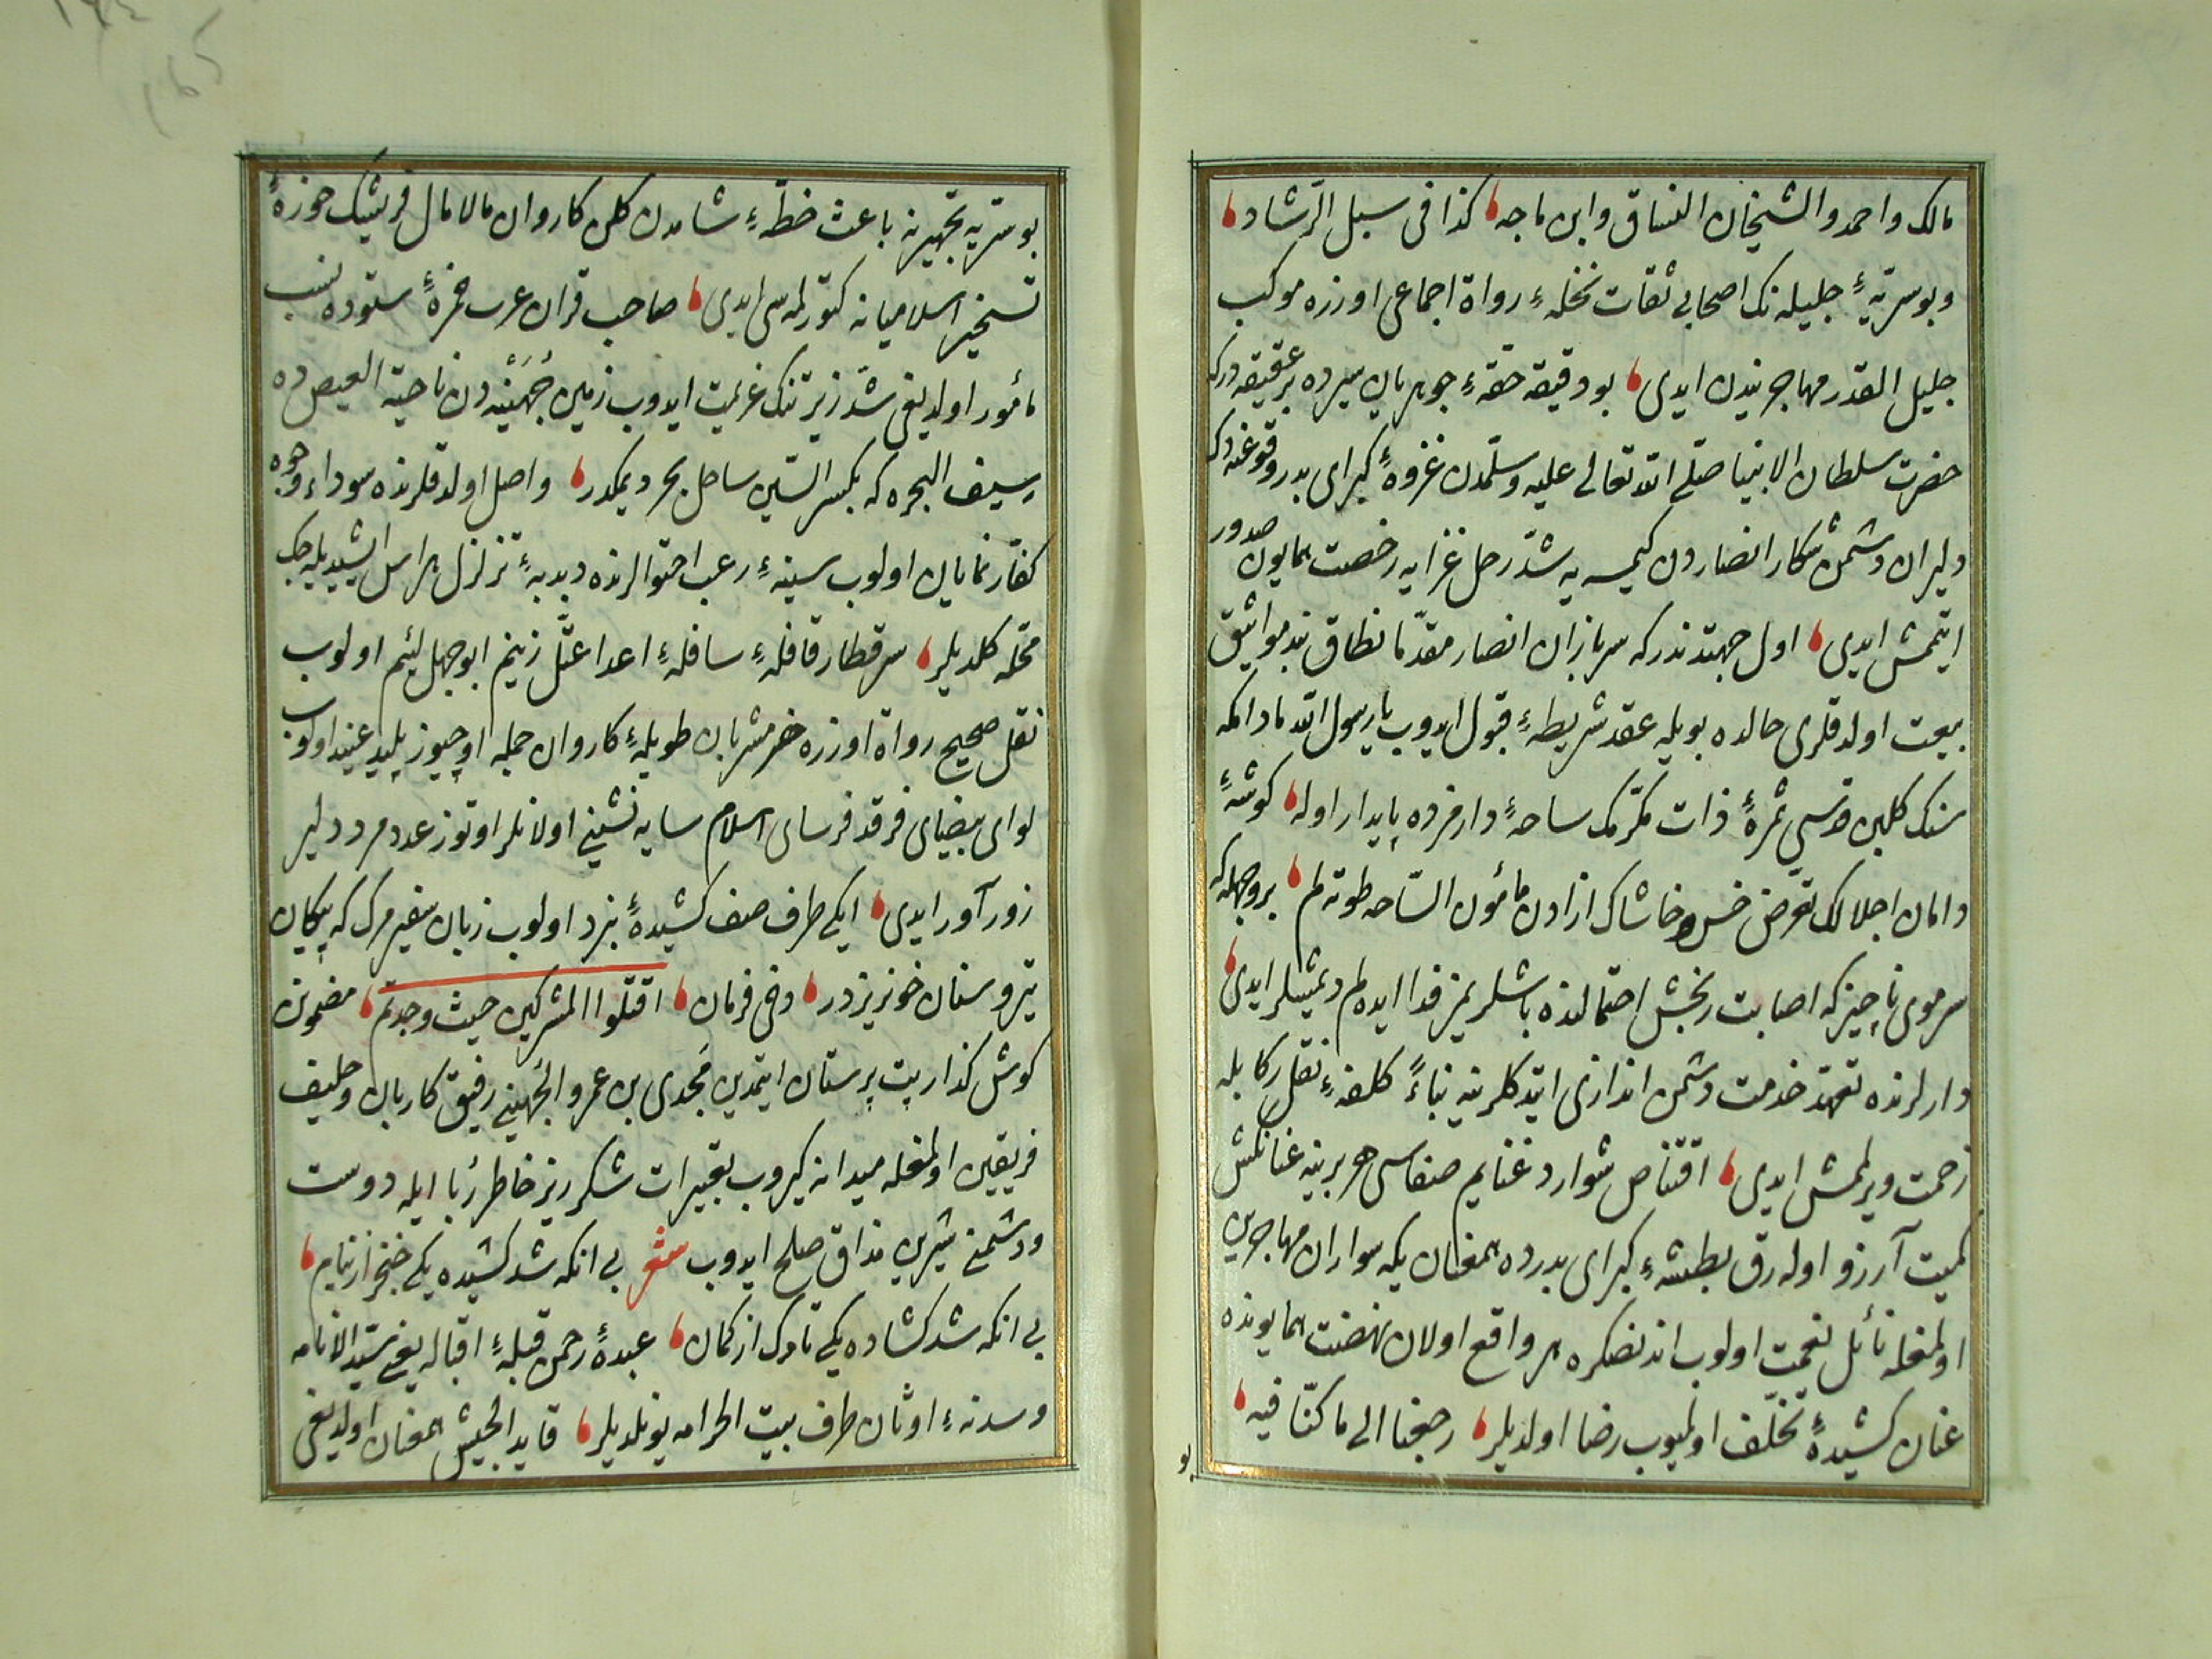 مالك واحمد والشيخان النساق وابن ماجه كذا فى سبل الرّشاد
وبوسريّهٔ جليله نك اصحابى ثقات نخلهٔ رواة اجماعى اوزره موكب
جليل القدر مهاجريندن ايدى بو دقيقه حقهٔ جوهريان سيرده بر عقيقه دركه
حضرت سلطان الانبيا صلّى الله تعالى عليه وسلّمدن غزوهٔ كبراى بدر وقوعنه دك
دليران دشمن شكار انصاردن كيمسه يه شدّ رحل غزايه رخصت همايون صدور
ايتمش ايدى اول جهتدندركه سربازان انصار مقدّما نطاق بند مواثيق
بيعت اولدقلرى حالده بويله عقد شريطهٔ قبول ايدوب يا رسول الله مادامكه
سنك كلبن قدسى ثمرهٔ ذات مكرّمك ساحهٔ دارمزده پايدار اوله كوشهٔ
دامان اجلالك تعرّض خس وخاشاك ازادن مأمون السّاحه طوته لم بر وجهله كه
سر موى ناچيزكه اصابت رنجش احتمالنده باشلريمز فدا ايده لم ديمشلر ايدى
دارلرنده تعهّد خدمت دشمن اندازى ايتدكلرينه بناءً كلفهٔ نقل ركابله
زحمت ويرلمش ايدى اقتناص شوارد غنايم صفاسى هر برينه عنانكش
كميت آرزو اوله رق بطشهٔ كبراى بدرده همعنان يكه سواران مهاجرين
اولمغله نائل نعمت اولوب اندنصكره هر واقع اولان نهضت همايونده
عنان كشيدهٔ تخلّف اولميوب رضا اولديلر رجعنا الى ما كنّا فيه
بو
بو سريّه تجهيزينه باعث خطّهٔ شامدن كلن كاروان مالامال قريشك حوزهٔ
تسخير اسلاميانه كتورلمه سى ايدى صاحب قران عرب حمزهٔ ستوده نسب
مأمور اولديغى شدّ زير تنك عزيمت ايدوب زمين جُهَيْنه دن ناحيهٔ العيص ده
سيف البحره كه بكسر السّين ساحل بحر ديمكدر واصل اولدقلرنده سوداء وجوه
كفّار نمايان اولوب سينهٔ رعب احتوالرنده دبدبهٔ تزلزل هراس ايشيديله جك
محلّه كلديلر سر قطار قافلهٔ سافلهٔ اعدا عتلّ زنيم ابو جهل لئيم اولوب
نقل صحيح رواة اوزره خر مشربان طويلهٔ كاروان جمله اوچيوز پليد عنيد اولوب
لواى بيضاى فرقد فرساى اسلام سايه نشينى اولانلر اوتوز عدد مرد دلير
زور آور ايدى ايكى طرف صف كشيدهٔ نبرد اولوب زبان سفير مرك كه پيكان
تير وسنان خونريزدر دفى فرمان اقتلوا المشركين حيث وجدتم مضمونن
كوش كذار بت پرستان ايتمدين مَجدى بن عمرو الجُهينى رفيق كاربان وحليف
فريقين اولمغله ميدانه كيروب تعبيرات شكرريز خاطر ربا ايله دوست
ودشمنى شيرين مذاق صلح ايدوب شعر بى انكه شد كشيده يكى خنجر از نيام
بى انكه شد كشاده يكى ناوك از كمان عبدهٔ رحمن قبلهٔ اقباله يعنى سيّد الانامه
وسدنهٔ اوثان طرف بيت الحرامه يونلديلر قايد الجيش همعنان اولديغى